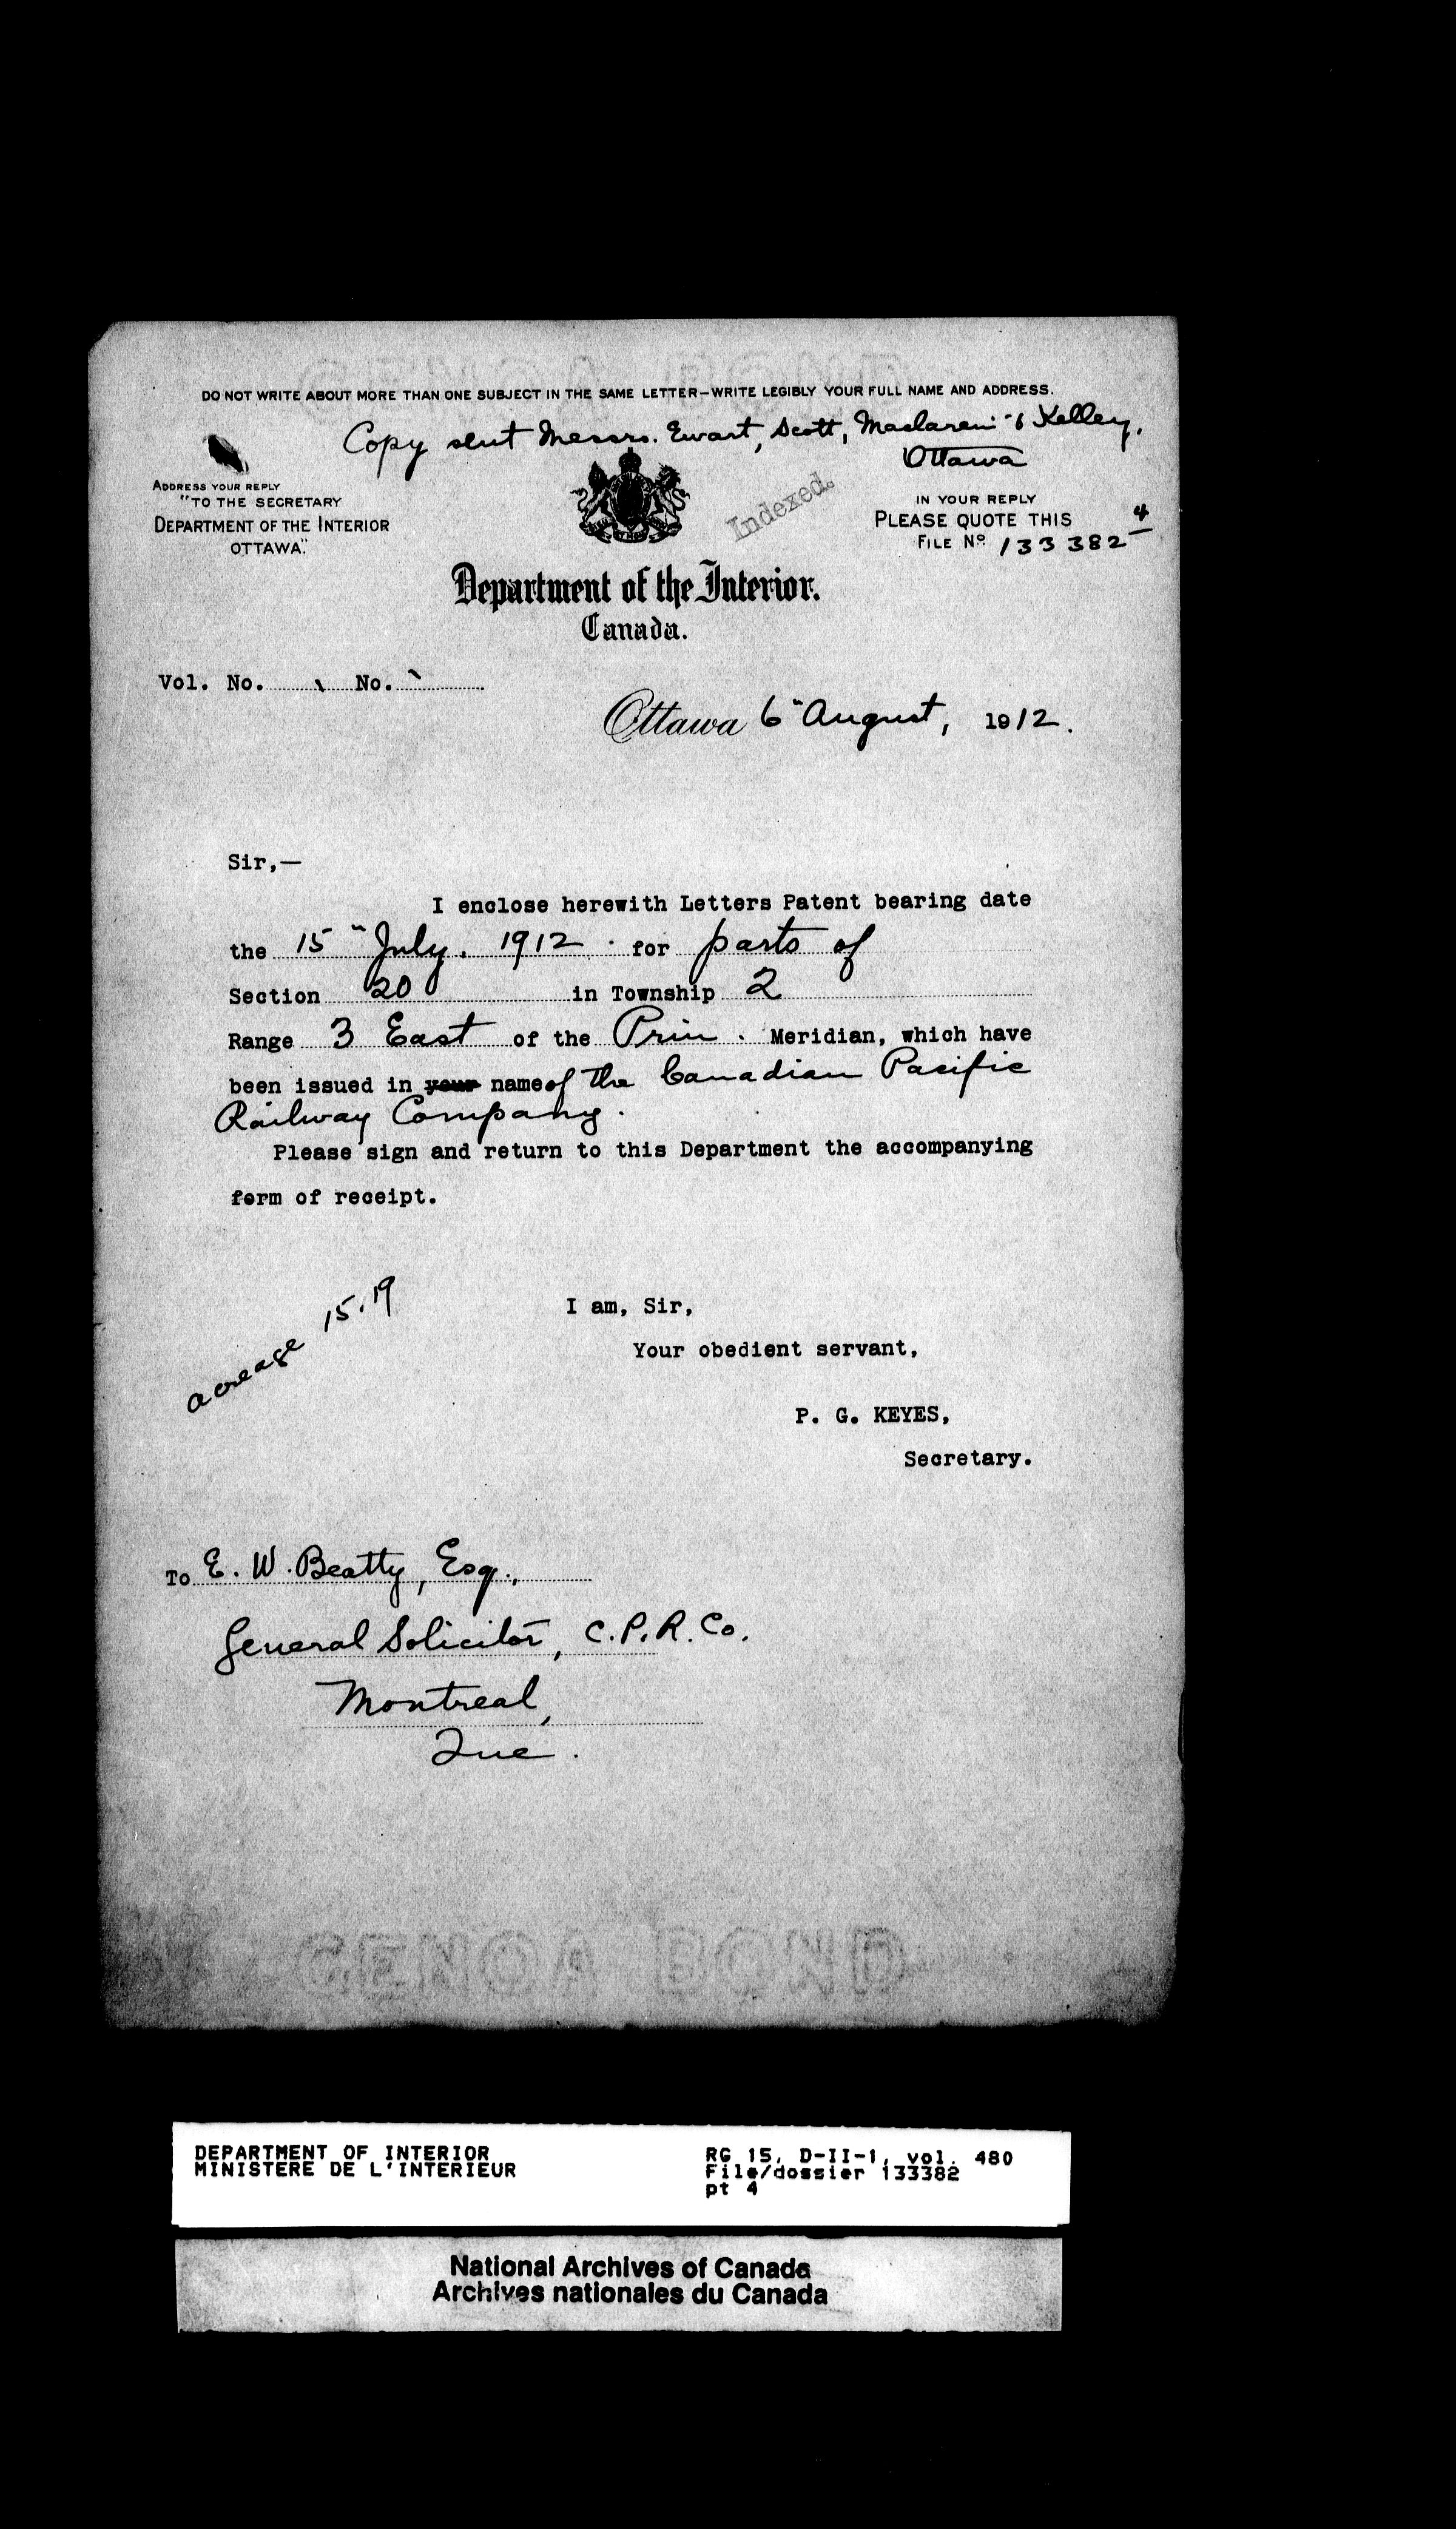 DO NOT WRITE ABOUT MORE THAN ONE SUBJECT IN THE SAME LETTER—WRITE LEGIBLY YOUR FULL NAME AND ADDRESS.
Copy sent Messrs. Ewart, Scott, Maclaren & Kelley,
Ottawa
ADDRESS YOUR REPLY
"TO THE SECRETARY
DEPARTMENT OF THE INTERIOR
OTTAWA."
Indexed.
IN YOUR REPLY
PLEASE QUOTE THIS
FILE No. 133382 4
Department of the Interior.
Canada.
Vol. No. No.
Ottawa 6" August, 1912.
Sir,—
I enclose herewith Letters Patent bearing date
the 15" July, 1912. for parts of
Section 20 in Township 2
Range 3 East of the Prin. Meridian, which have
been issued in your name of the Canadian Pacific
Railway Company.
Please sign and return to this Department the accompanying
form of receipt.
acreage 15.19
I am, Sir,
Your obedient servant,
P. G. KEYES,
Secretary.
To E. W. Beatty, Esq.,
General Solicitor, C.P.R. Co.
Montreal,
Que.
GENOA BOND
DEPARTMENT OF INTERIOR
MINISTERE DE L'INTERIEUR
RG 15, D-II-1, vol. 480
File/dossier 133382
pt 4
National Archives of Canada
Archives nationales du Canada